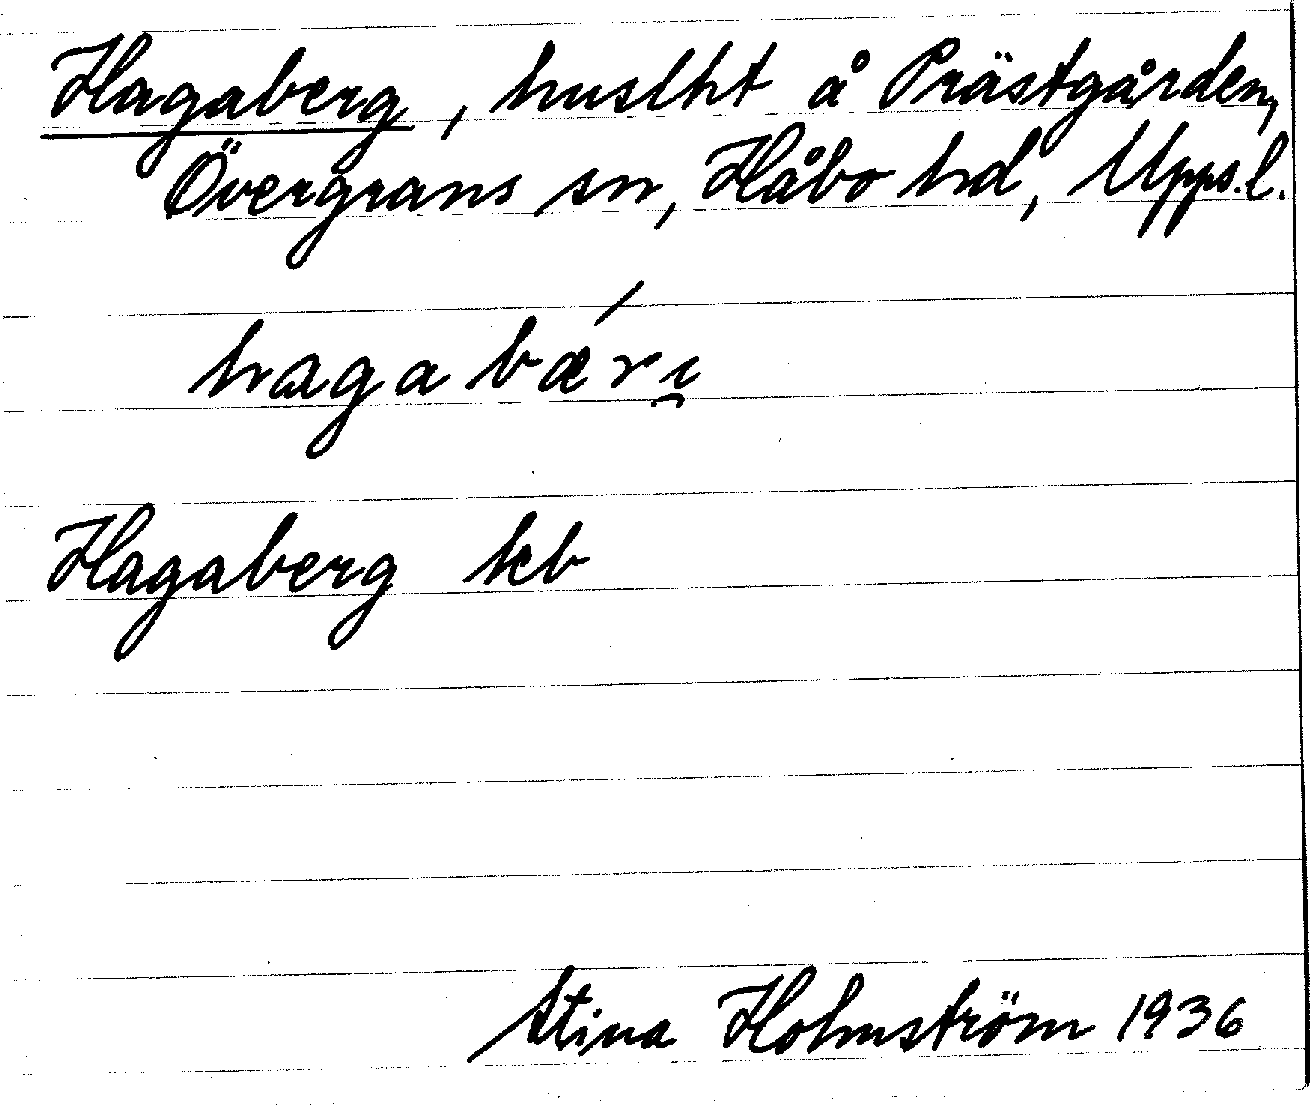 Hagaberg, huslht å Prästgården,
Övergrans sn, Håbo hd, Upps.l.
hagabæ´rı̯
Hagaberg kb
Stina Holmström 1936